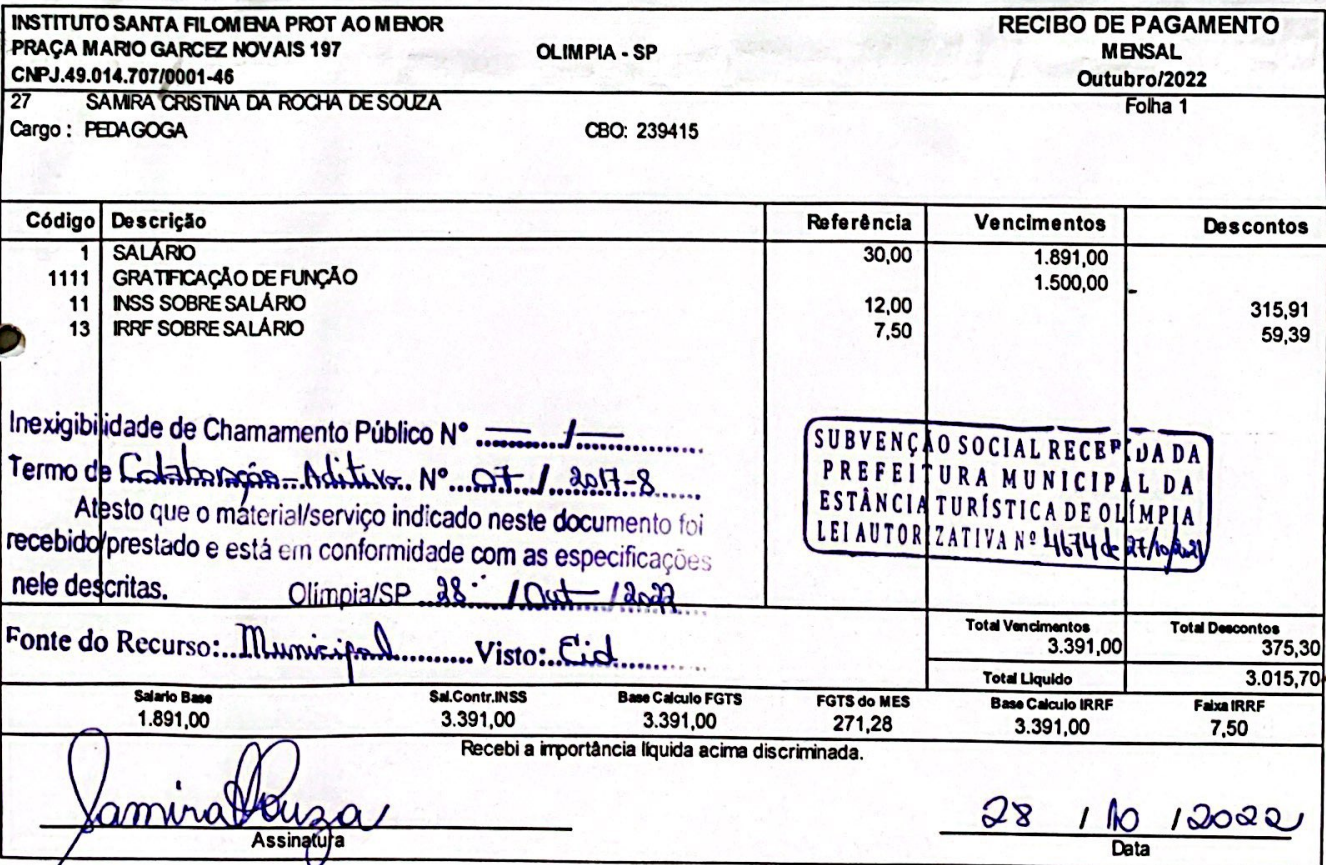 INSTITUTO SANTA FILOMENA PROT AO MENOR
RECIBO DE PAGAMENTO
PRAÇA MARIO GARCEZ NOVAIS 197
OLIMPIA - SP
MENSAL
CNPJ.49.014.707/0001-46
Outubro/2022
27 SAMIRA CRISTINA DA ROCHA DE SOUZA
Folha 1
Cargo : PEDAGOGA
CBO: 239415
Código Descrição Referência Vencimentos Descontos
1 SALÁRIO 30,00 1.891,00
1111 GRATIFICAÇÃO DE FUNÇÃO 1.500,00
11 INSS SOBRE SALÁRIO 12,00 315,91
13 IRRF SOBRE SALÁRIO 7,50 59,39
Inexigibilidade de Chamamento Público Nº — / —
Termo de Colaboração - Aditivo Nº 07 / 2017-8
Atesto que o material/serviço indicado neste documento foi
recebido/prestado e está em conformidade com as especificações
nele descritas. Olimpia/SP 28 / Out / 2022
SUBVENÇÃO SOCIAL RECEBIDA DA
PREFEITURA MUNICIPAL DA
ESTÂNCIA TURÍSTICA DE OLÍMPIA
LEI AUTORIZATIVA Nº 4674 de 27/10/2021
Fonte do Recurso: Municipal Visto: Cid
Total Vencimentos Total Descontos
3.391,00 375,30
Total Liquido 3.015,70
Salario Base Sal.Contr.INSS Base Calculo FGTS FGTS do MES Base Calculo IRRF Faixa IRRF
1.891,00 3.391,00 3.391,00 271,28 3.391,00 7,50
Recebi a importância líquida acima discriminada.
Samira Souza
28 / 10 / 2022
Assinatura
Data